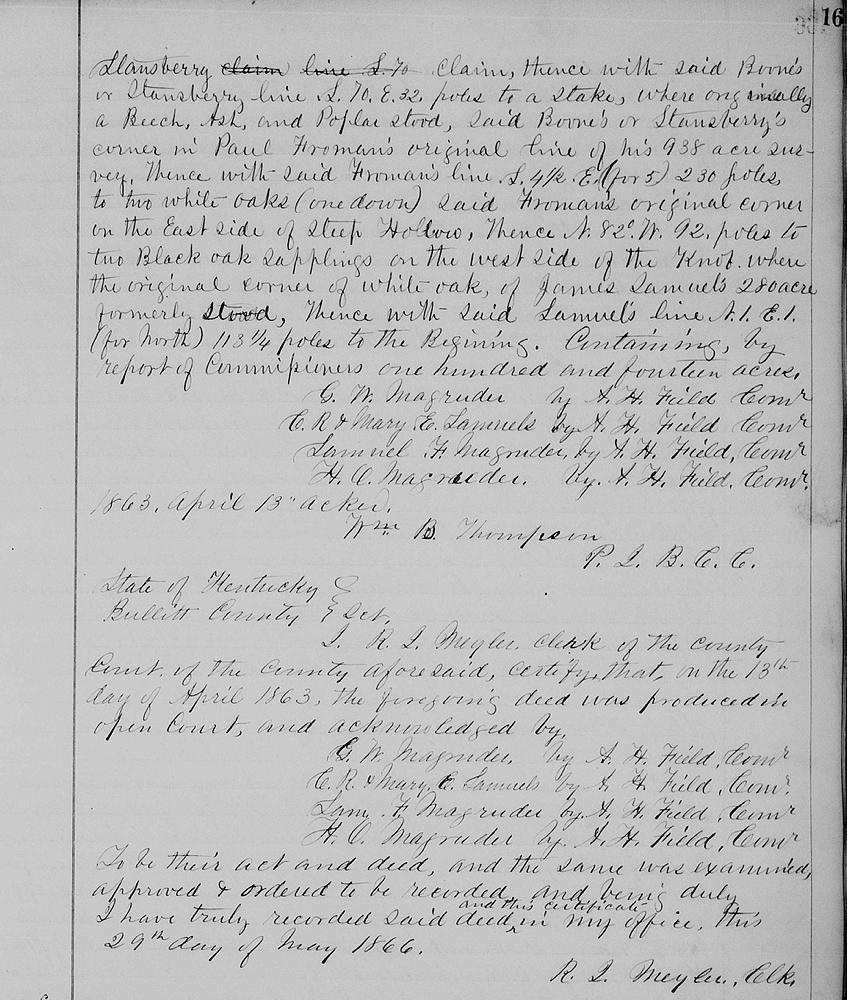 16
Stansberry claim line S. 70 claim, thence with said Boone's
or Stansberry line S. 70. E. 32. poles to a stake, where originally
a Beech, Ash, and Poplar stood, said Boone's or Stansberry's
corner in Paul Froman's original line of his 938 acre sur-
vey, Thence with said Froman's line S. 4½ E. (for 5) 230 poles,
to two white oaks (one down) said Froman's original corner
on the East side of steep Hollow, Thence N. 82°. W. 92. poles to
two Black oak sapplings on the west side of the Knob. where
the original corner of white oak, of James Samuel's 280 acre
formerly stood, Thence with said Samuel's line N. 1. E. 1.
(for North) 113 1/4 poles to the Begining. Containing, by
report of Commissioners one hundred and fourteen acres.
G. W. Magruder by A. H. Field Comr
C. R & Mary E. Samuels by A. H. Field Comr
Samuel F. Magruder, by A. H. Field, Comr
H. O. Magruder. by. A. H. Field. Comr.
1863. April 13" acked.
Wm B. Thompson
P. J. B. C. C.
State of Kentucky }
Bullitt County } Sct.
I. R. J. Meyler clerk of the county
Court. of the County aforesaid, certify, that, on the 13th
day of April 1863, the foregoing deed was produced in
open Court, and acknowledged by,
G. W. Magruder, by A. H. Field, Comr
C. R. & Mary. E. Samuels by A. H Field, Comr.
Sam. F. Magruder by. A. H. Field, Comr
H. O. Magruder by. A. H. Field, Comr
To be their act and deed, and the same was examined,
approved & ordered to be recorded, and being duly
I have truly recorded said deed, and this certificate in my office, this
29th day of May 1866.
R. J. Meyler, Clk.